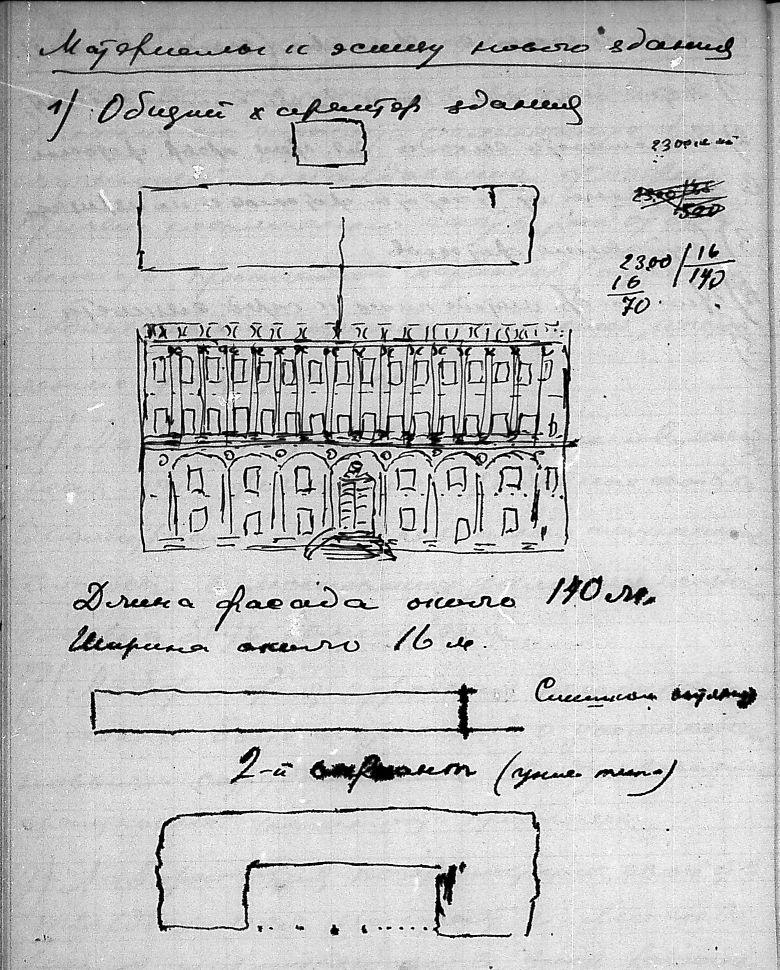 Материалы к эскизу нового здания
1) Общий характер здания
2300 кв м
2300 | 16
16 | 140
70
Длина фасада около 140 м.
Ширина около 16 м.
Слишком
2-й вариант